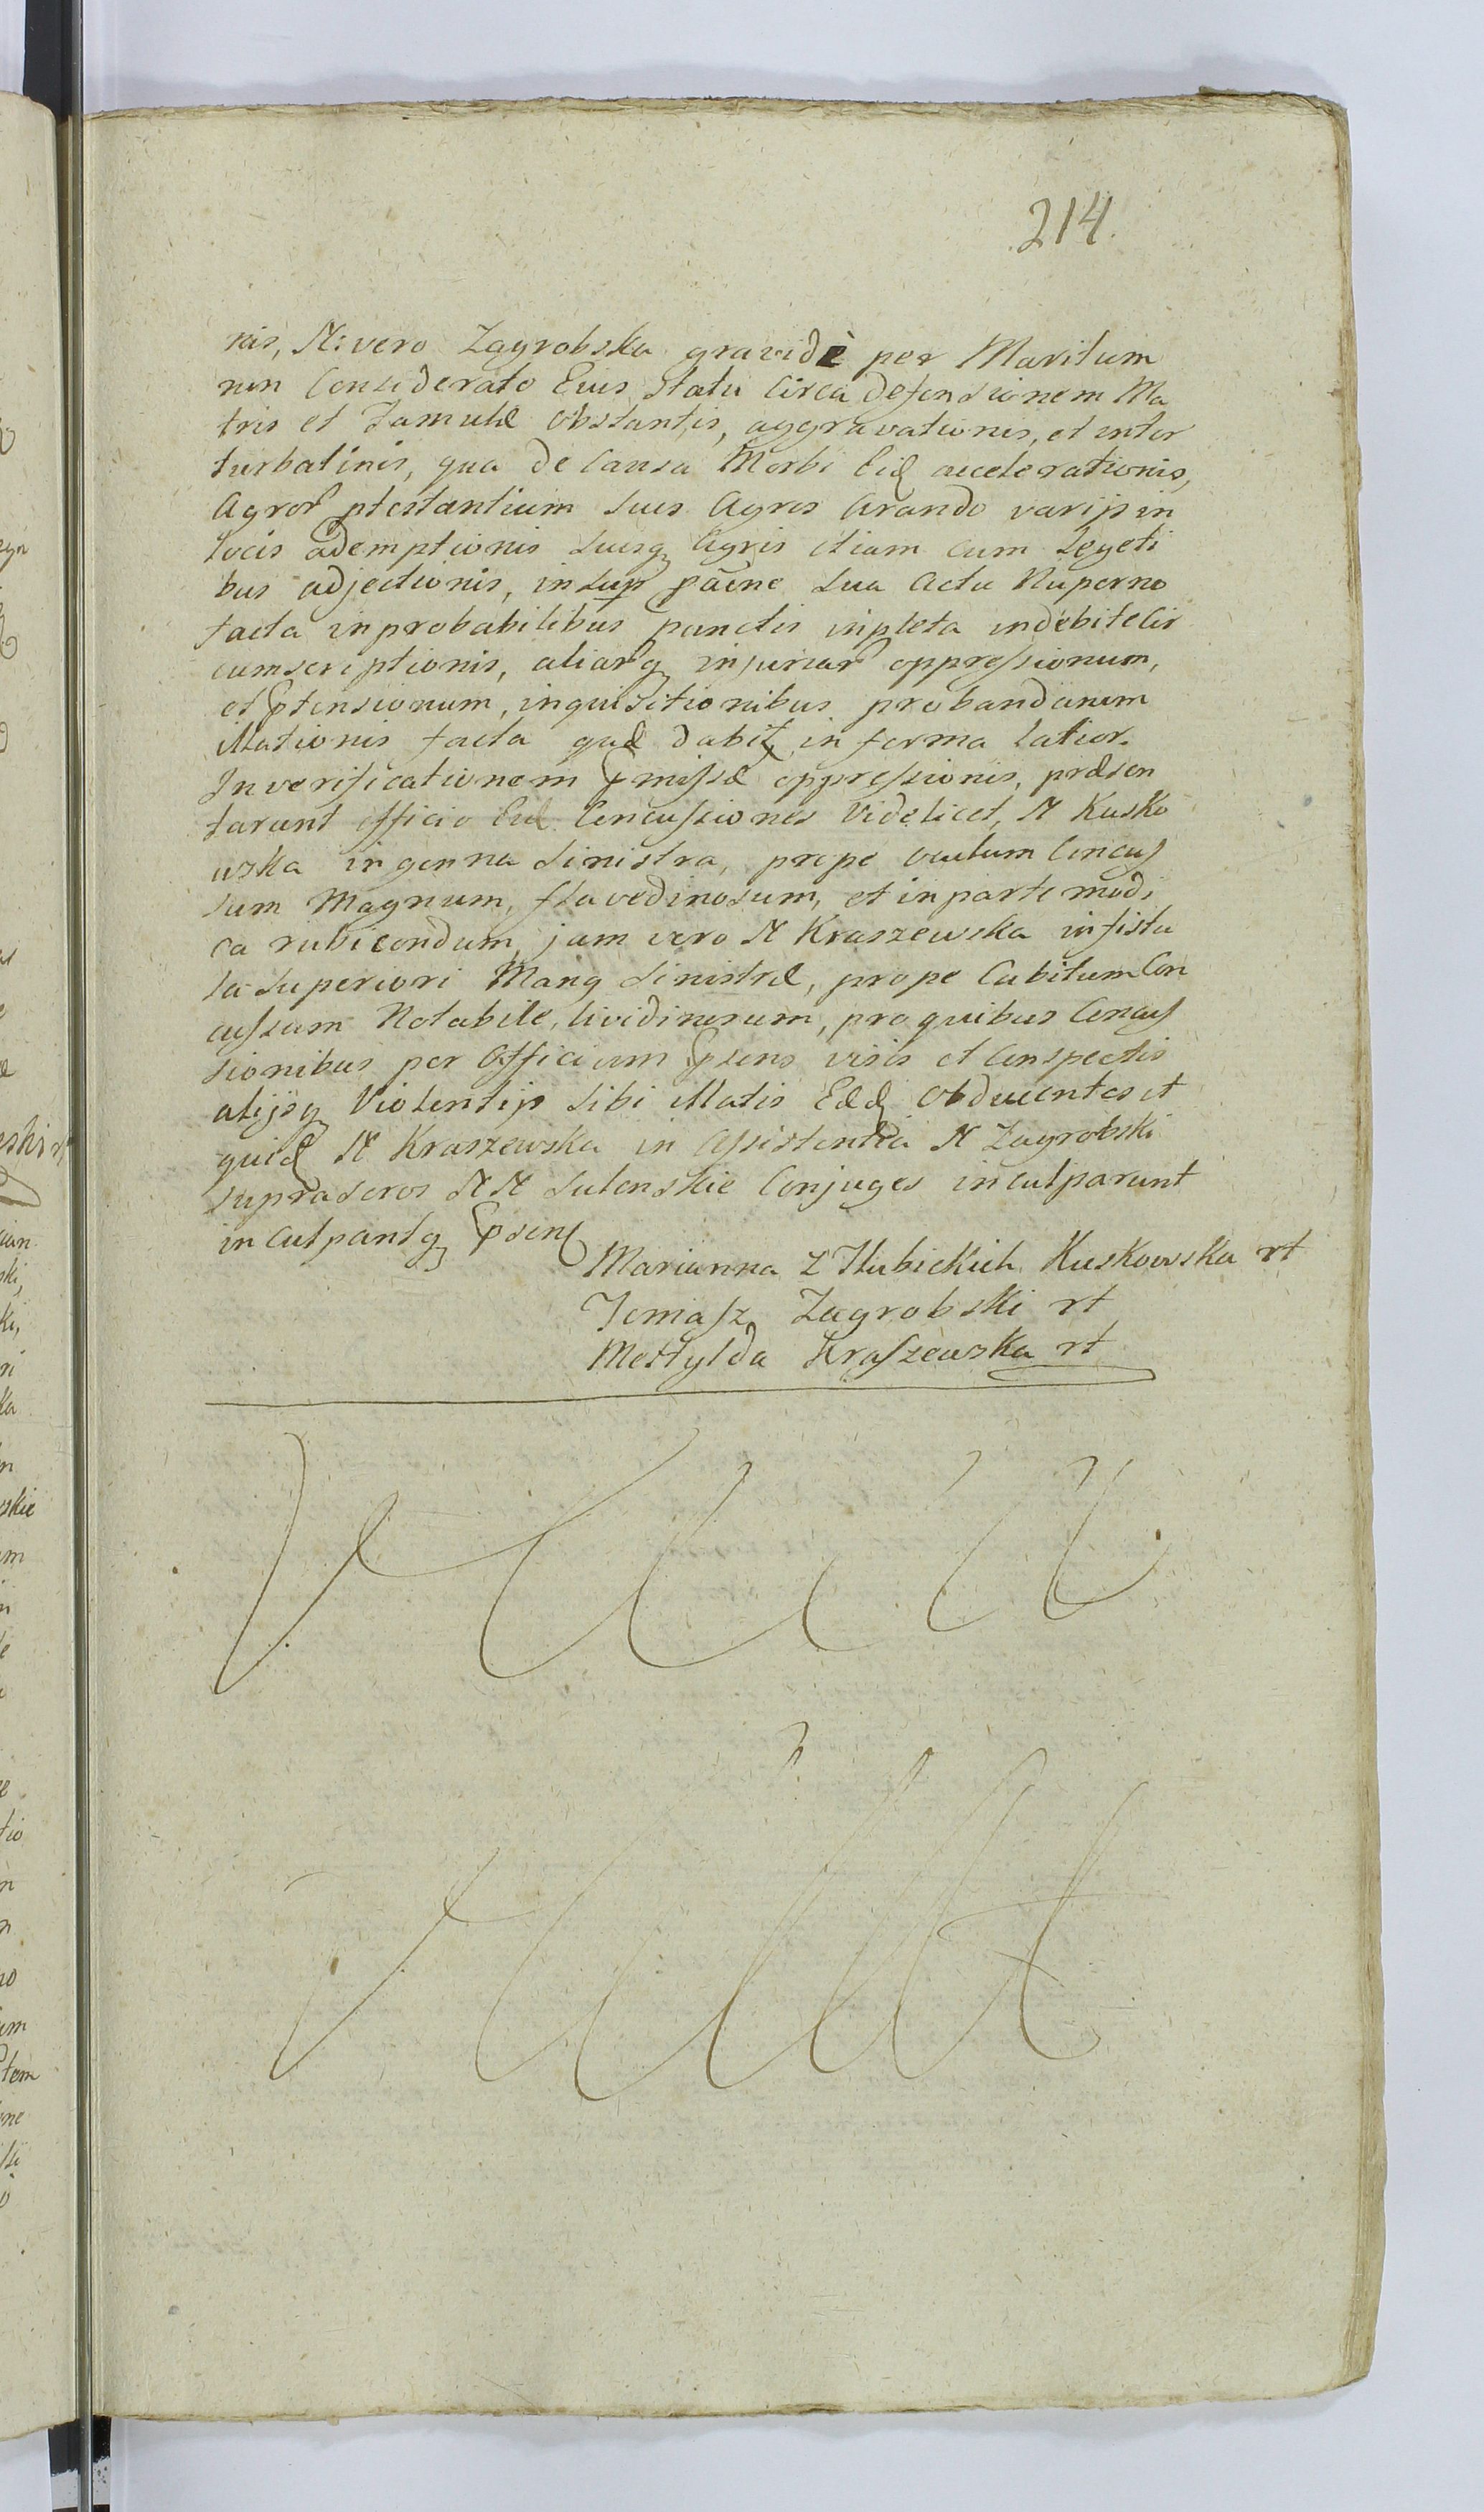 214.
nis, N: vero Zagrobska gravidæ per Maritum
non Considerato Eius Statu Circa defensionem Ma
tris et Famulæ obstantis, aggravationis, et inter
turbatinis, qua de Causa Morbi Eid accelerationis,
Agror ptestantium suis Agris Arando varijs in
locis ademptionis suisq Agris etiam cum Segeti
bus adjectionis, insup pāene sua Actu Nuperno
facta inprobabilibus punctis inpleta indebite Cir
cumscriptionis, aliarq injuriar oppressionum,
et ptensionum, inquisitionibus probandarum
illationis facta quæ dabit in forma latior.
In verificationem pmissæ oppressionis, præsen
tarunt officio Eid Concussiones Videlicet, N Kusko
wska in genna sinistra, prope oculum Concus
sum Magnum, flavedinosum, et in parte modi
ca rubicondum, jam vero N Kraszewska in fistu
la superiori Mang sinistræ, prope Cubitum Con
cussum Notabile, lividinosum, pro quibus Concus
sionibus per Officium psens visis et Conspectis
alijsq Violentijs sibi illatis Eædq obducentes et
quid N Kraszewska in Assistentia N Zagrobski
supradcros NN Sulenskie Conjuges inculparunt
inculpantq psent
Marianna z Hubickich Kuskowska rt
Tomasz Zagrobski rt
Mettylda Kraszewska rt